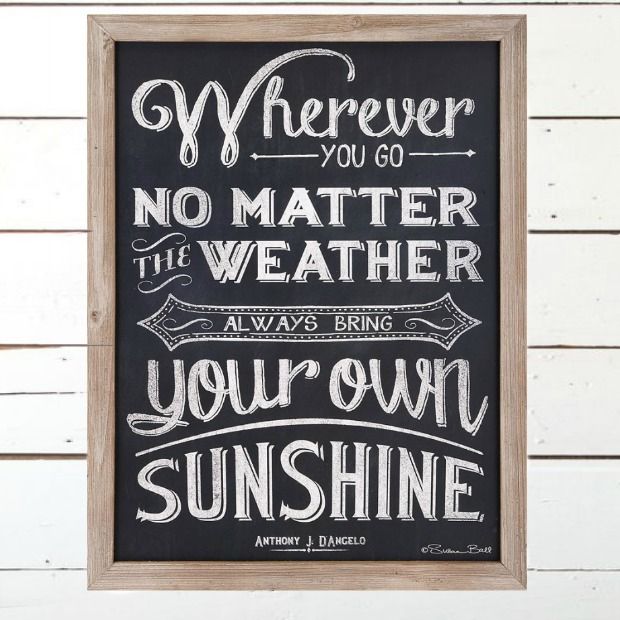 Wherever
YOU GO
NO MATTER
THE WEATHER
ALWAYS BRING
your own
SUNSHINE
ANTHONY J. D'ANGELO
© Susan Ball